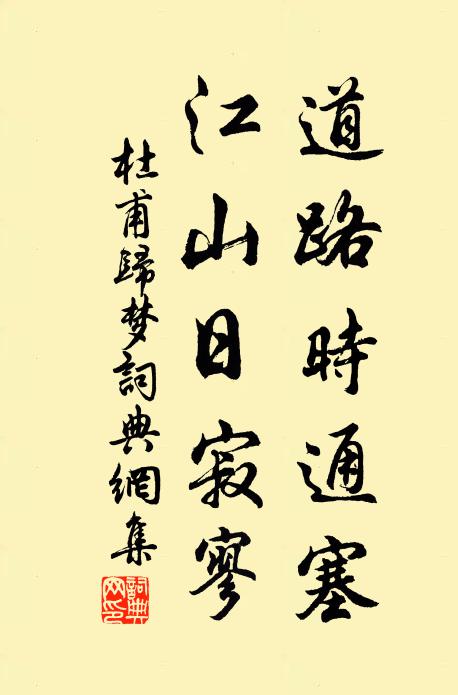 道路時通塞
江山日寂寥
杜甫歸梦詞典網集
詞典网印